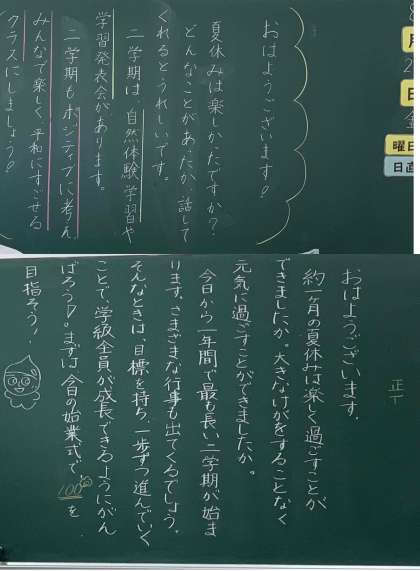 おはようございます!
夏休みは楽しかったですか?
どんなことがあったか、話して
くれるとうれしいです。
二学期は、自然体験学習や
学習発表会があります。
二学期もポジティブに考え、
みんなで楽しく、平和にすごせる
クラスにしましょう!
8
月
2
日
金
曜日
日直
おはようございます。
約一ヶ月の夏休みは楽しく過ごすことが
できましたか。大きなけがをすることなく
元気に過ごすことができましたか。
今日から一年間で最も長い二学期が始ま
ります。さまざまな行事も出てくるでしょう。
そんなときは、目標を持ち、一歩ずつ進んでいく
ことで、学級全員が成長できるようにがん
ばろう。まずは今日の始業式で100%を
目指そう!